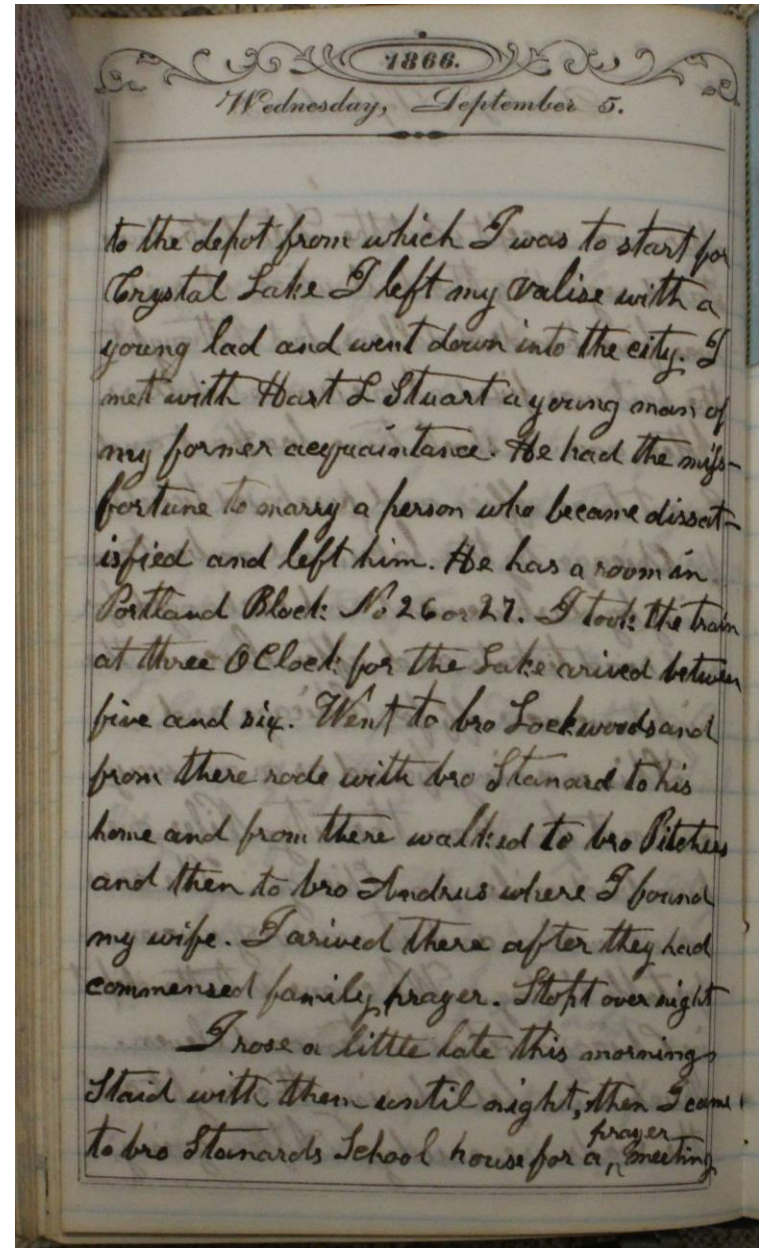 1866.
Wednesday, September 5.
to the depot from which I was to start for
Crystal Lake I left my valise with a
young lad and went down into the city. I
met with Hart L Stuart a young man of
my former acquaintance. He had the mis-
fortune to marry a person who became dissat-
isfied and left him. He has a room in
Portland Block No 26 or 27. I took the train
at three OClock for the Lake arived between
five and six. Went to bro Lockwoods and
from there rode with bro Stanard to his
home and from there walked to bro Pitchers
and then to bro Andrus where I found
my wife. I arived there after they had
commensed family prayer. Stopt over night
I rose a little late this morning
Staid with them until night, then I came
prayer
to bro Stanards School house for a meeting